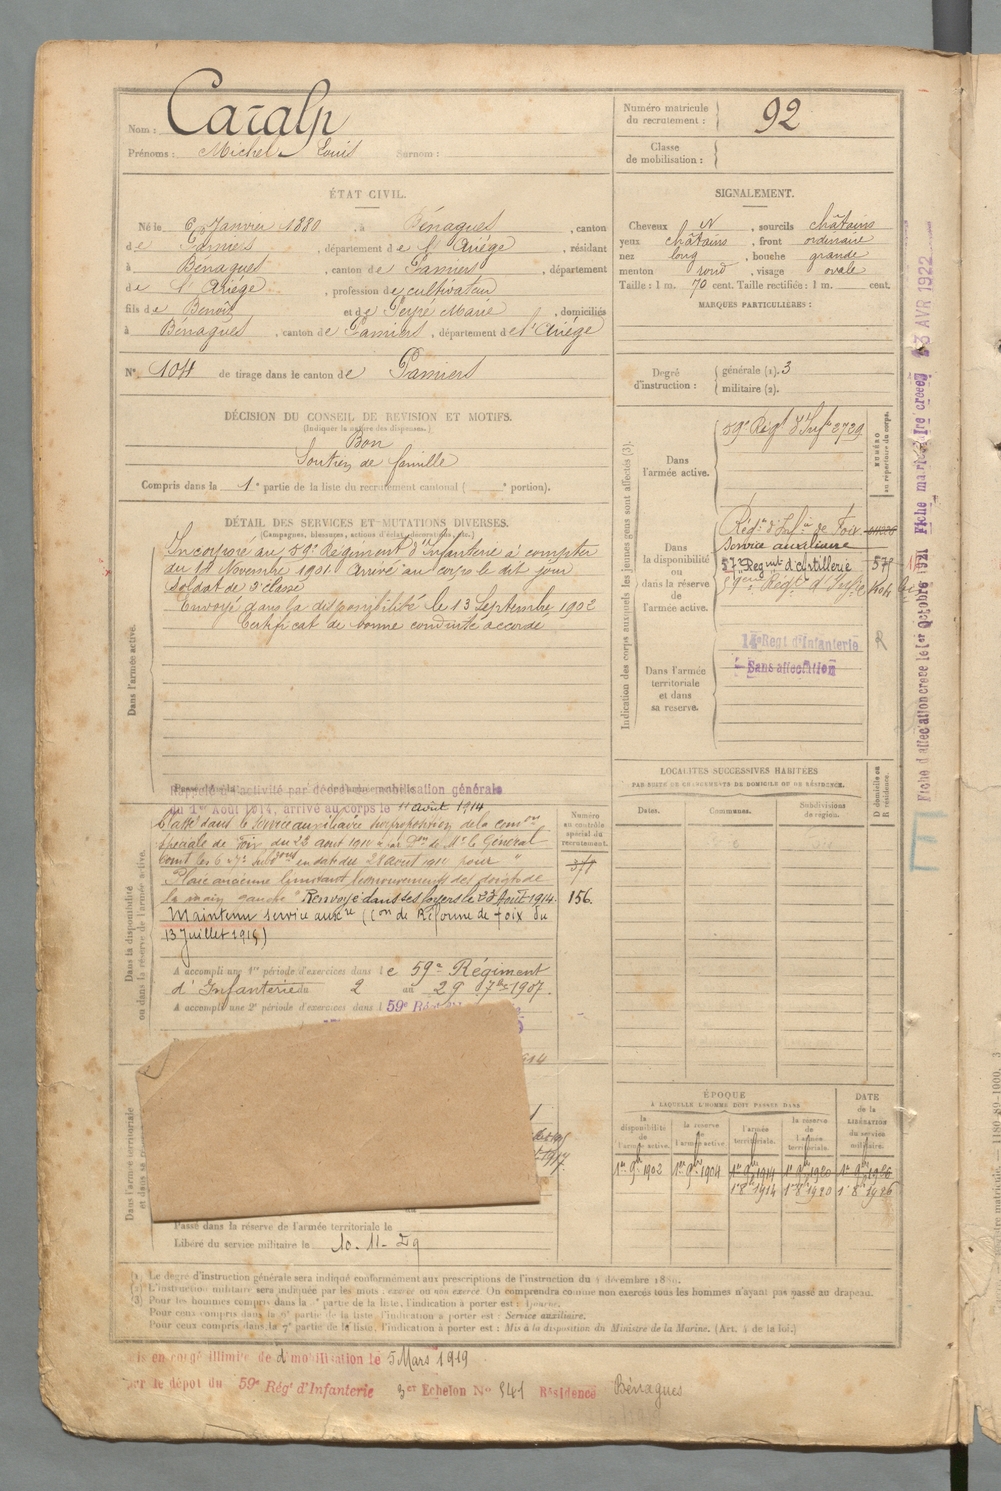 Nom : Caralp
Prénoms : Michel Louis Surnom :
Numéro matricule du recrutement : 92
Classe de mobilisation :
ÉTAT CIVIL.
Né le 6 Janvier 1880, à Bénagues, canton
de Pamiers, département de l'Ariège, résidant
à Bénagues, canton de Pamiers, département
de l'Ariège, profession de cultivateur
fils de Benoît et de Peyre Marie, domiciliés
à Bénagues, canton de Pamiers, département de l'Ariège
N° 104 de tirage dans le canton de Pamiers
SIGNALEMENT.
Cheveux N, sourcils châtains
yeux châtains, front ordinaire
nez long, bouche grande
menton rond, visage ovale
Taille : 1 m. 70 cent. Taille rectifiée : 1 m. cent.
MARQUES PARTICULIÈRES :
Degré d'instruction : générale (1). 3
militaire (2).
DÉCISION DU CONSEIL DE REVISION ET MOTIFS.
(Indiquer la nature des dispenses.)
Bon
Soutien de famille
Compris dans la 1e partie de la liste du recrutement cantonal ( e portion).
DÉTAIL DES SERVICES ET MUTATIONS DIVERSES.
(Campagnes, blessures, actions d'éclat, décorations, etc.)
Dans l'armée active.
Incorporé au 59e Régiment d'Infanterie à compter
du 14 Novembre 1901. Arrivé au corps le dit jour
Soldat de 2e classe
Envoyé dans la disponibilité le 13 Septembre 1902
Certificat de bonne conduite accordé
Rappelé à l'activité par décret de mobilisation générale
du 1er Août 1914, arrivé au corps le 11 août 1914
Dans la disponibilité ou dans la réserve de l'armée active.
Classé dans le service auxiliaire sur proposition de la comon
spéciale de Foix du 22 aout
Mr le Général
en dat du 28 aout pour "
Plaie ancienne limitant les mouvements des doigts de
la main gauche" Renvoyé dans ses foyers le Août 1914.
Maintenu service auxre (Con de Réforme de Foix du
13 Juillet 1915)
Numéro au contrôle spécial du recrutement.
371
156.
A accompli une 1re période d'exercices dans le 59e Régiment
d'Infanterie du 2 au 29 7bre 1907.
A accompli une 2e période d'exercices dans l 59e
Dans l'armée territoriale
Passé dans la réserve de l'armée territoriale le
Libéré du service militaire le 10-11-29
Indication des corps auxquels les jeunes gens sont affectés (3).
NUMÉRO au répertoire du corps.
Dans l'armée active.
59e Régt d'Infie 2729
Dans la disponibilité ou dans la réserve de l'armée active.
Régt d'Infie de Foix
Service auxiliaire
57e Regiment d'Artillerie 578
Régt d'Infie
Dans l'armée territoriale et dans sa réserve.
14e Regt d'Infanterie
Sans affectation
Fiche d'affectation créée le 1er Octobre 1921 Fiche matriculaire créée 23 AVR 1922
LOCALITÉS SUCCESSIVES HABITÉES
PAR SUITE DE CHANGEMENTS DE DOMICILE OU DE RÉSIDENCE.
Dates. Communes. Subdivisions de région. D domicile ou R résidence.
ÉPOQUE
À LAQUELLE L'HOMME DOIT PASSER DANS
la disponibilité de l'armée active. la réserve de l'armée active. l'armée territoriale. la réserve de l'armée territoriale. DATE de la LIBÉRATION du service militaire.
1er 9bre 1902 1er 9bre 1904 1er 9bre 1914 1er 9bre 1920 1er 9bre 1926
1er 8bre 1914 1er 8bre 1920 1er 8bre 1926
(1) Le degré d'instruction générale sera indiqué conformément aux prescriptions de l'instruction du 4 décembre 1889.
(2) L'instruction militaire sera indiquée par les mots : exercé ou non exercé. On comprendra comme non exercés tous les hommes n'ayant pas passé au drapeau.
(3) Pour les hommes compris dans la partie de la liste, l'indication à porter est : Ajourné.
Pour ceux compris dans la 6e partie de la liste, l'indication à porter est : Service auxiliaire.
Pour ceux compris dans la 7e partie de la liste, l'indication à porter est : Mis à la disposition du Ministre de la Marine. (Art. 4 de la loi.)
is en congé illimité de démobilisation le 5 Mars 1919
par le dépôt du 59e Régt d'Infanterie 3er Echelon No 541 Résidence Bénagues